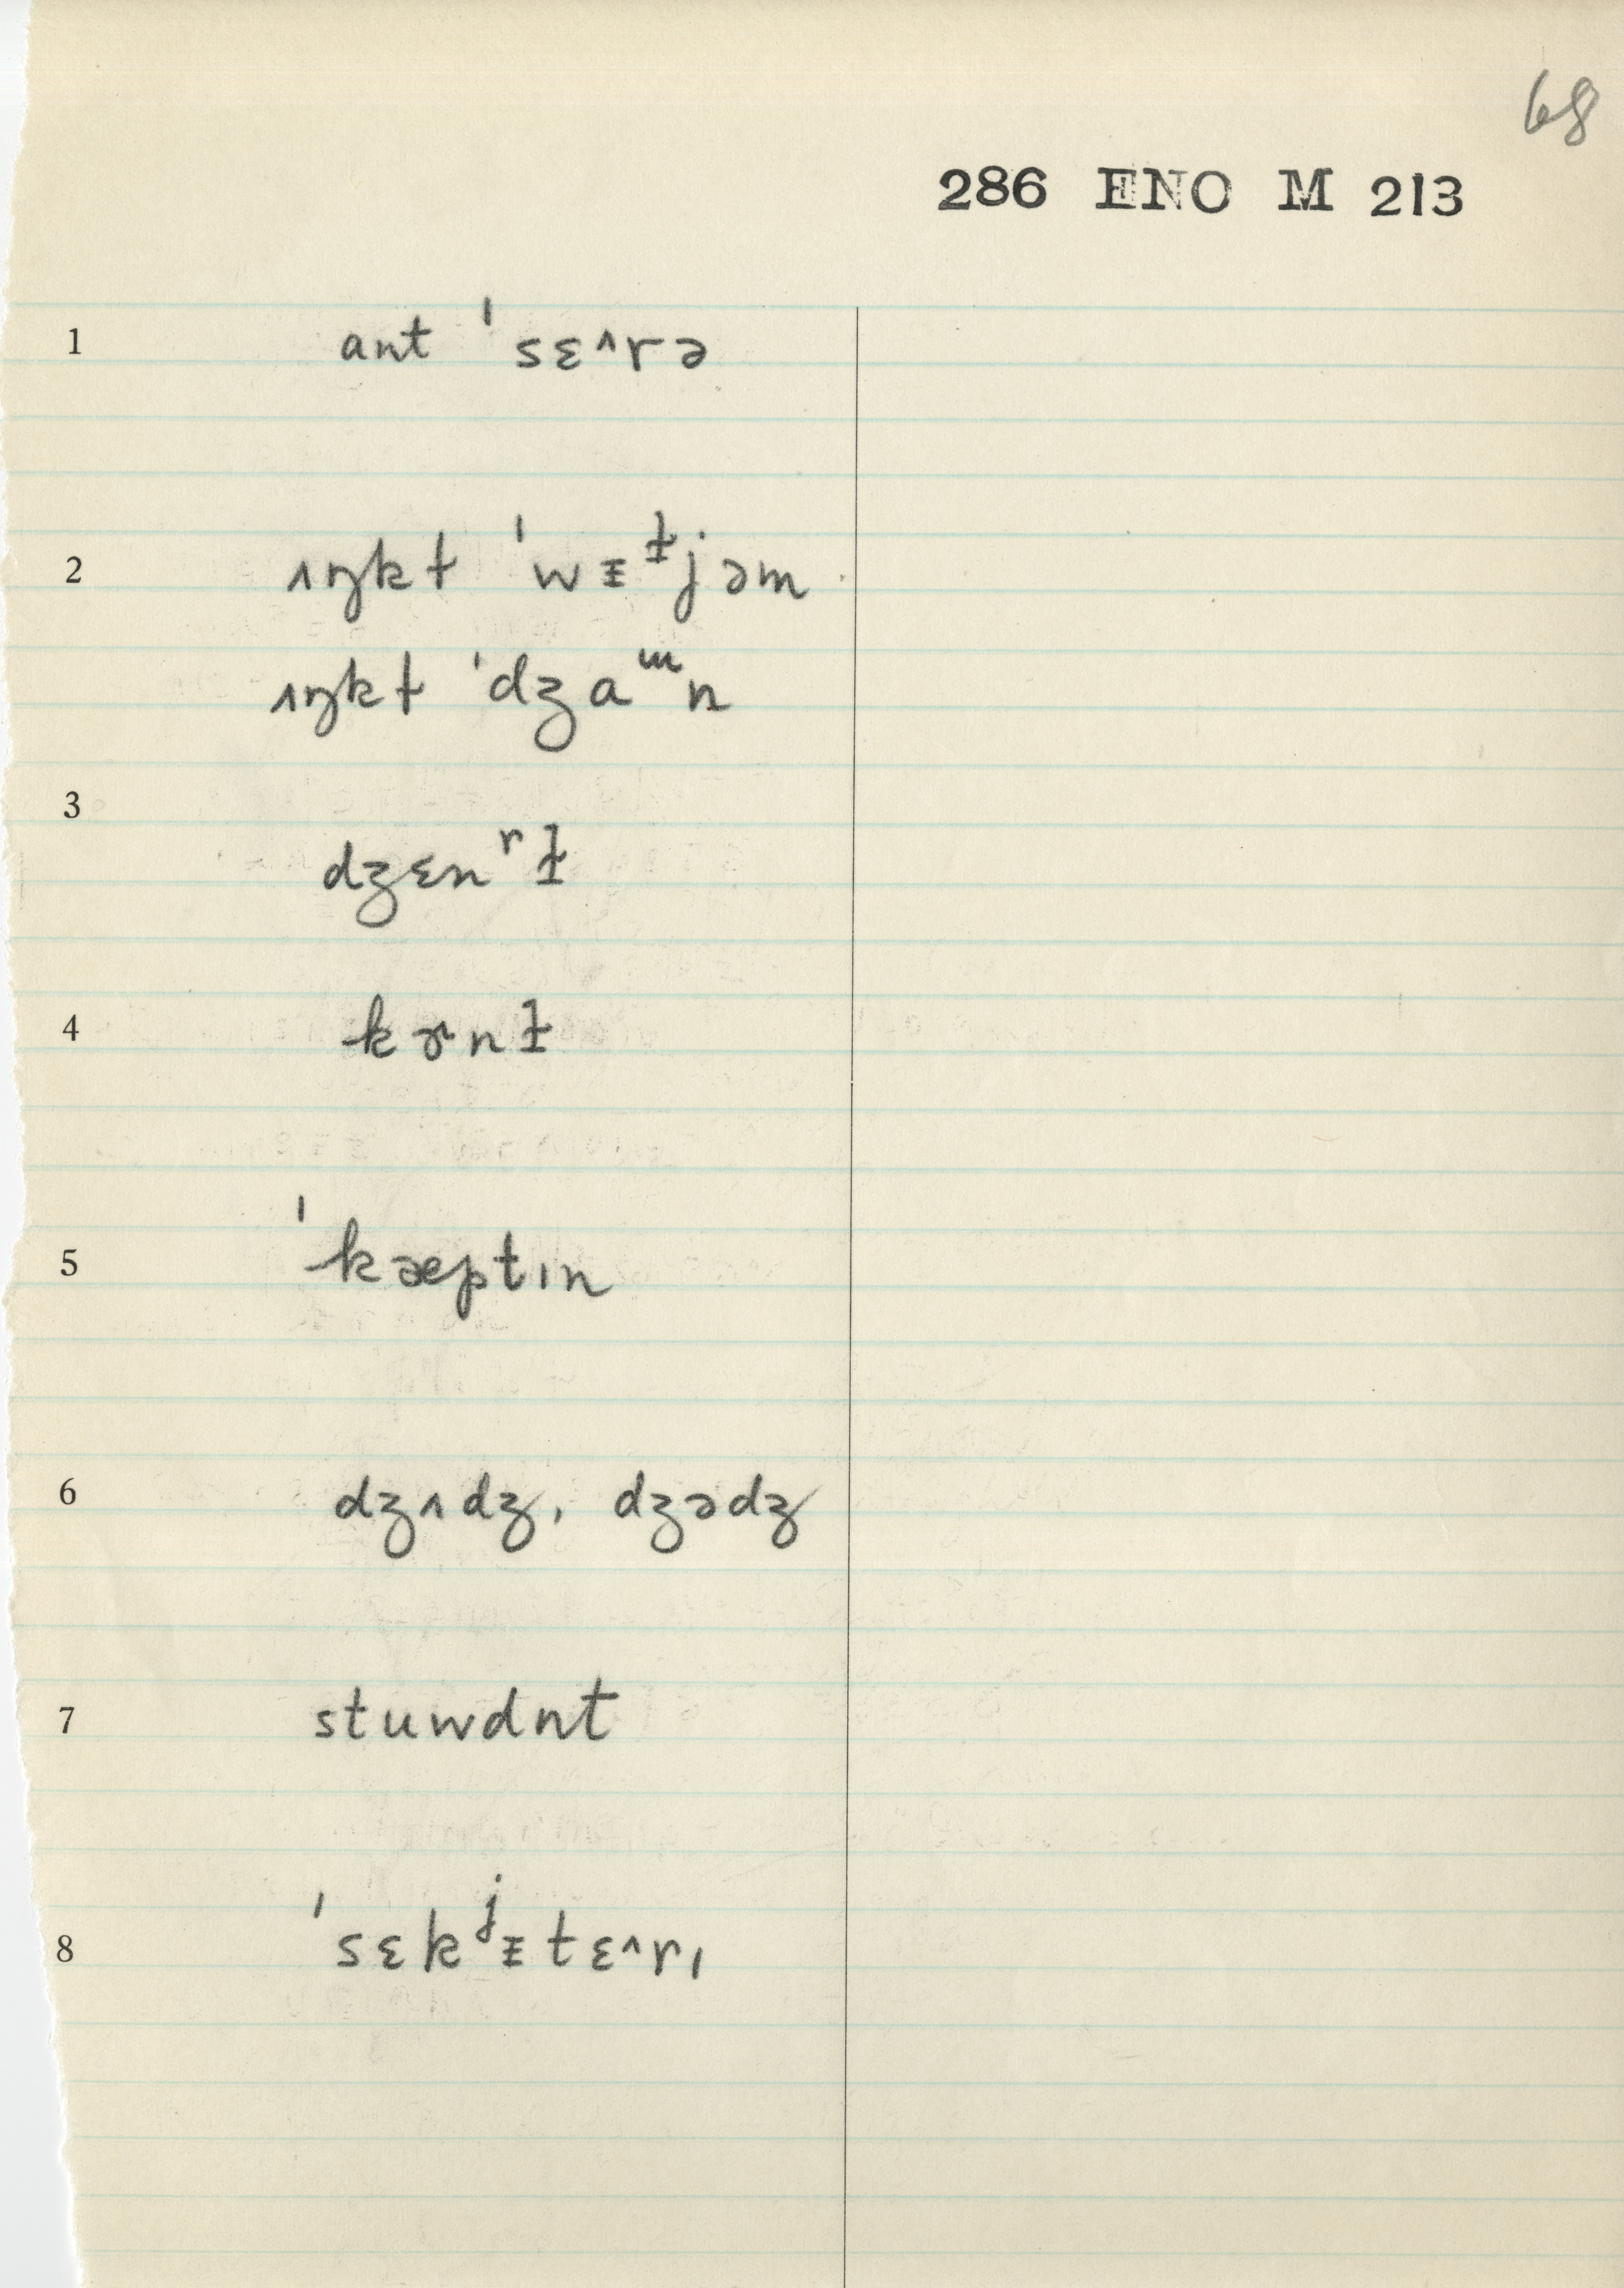 68
286 ENO M 213
1 ant ˈsɛ^rə
2 ʌŋkɫ ˈwᵻᶧjəm
ʌŋkɫ ˈdʒaᵚn
3 dʒɛnʳɫ
4 kɚnɫ
5 ˈkæptɪn
6 dʒʌdʒ, dʒədʒ
7 stuwdnt
8 ˈsɛkʲᵻtɛ^rɪ